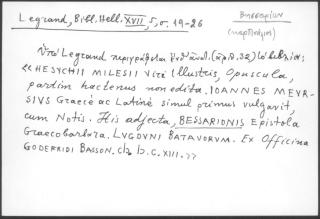 Legrand, Bibl. Hell. XVII, 5, σ. 19-26
Βησσαρίων
Ὑπὸ Legrand περιγράφεται
«HESYCHII MILESII Viri Illustris, Opuscula,
partim hactenus non edita. IOANNES MEUR-
SIUS Graecè ac Latinè simul primus vulgavit,
cum Notis. His adjecta, BESSARIONIS Epistola
Graecobarbara. LUGDUNI BATAVORUM. Ex Officina
GODEFRIDI BASSON. C. XIII.»